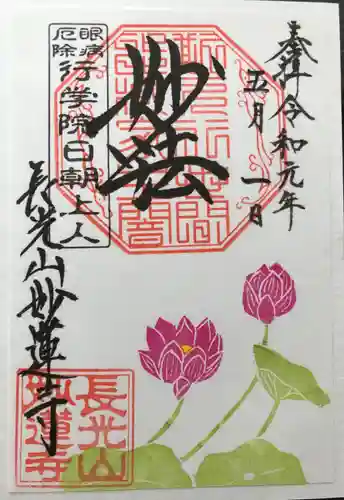 奉拝 令和元年
五月一日
妙法
眼病
厄除
行学院日朝上人
長光山妙蓮寺
長光山
妙蓮寺